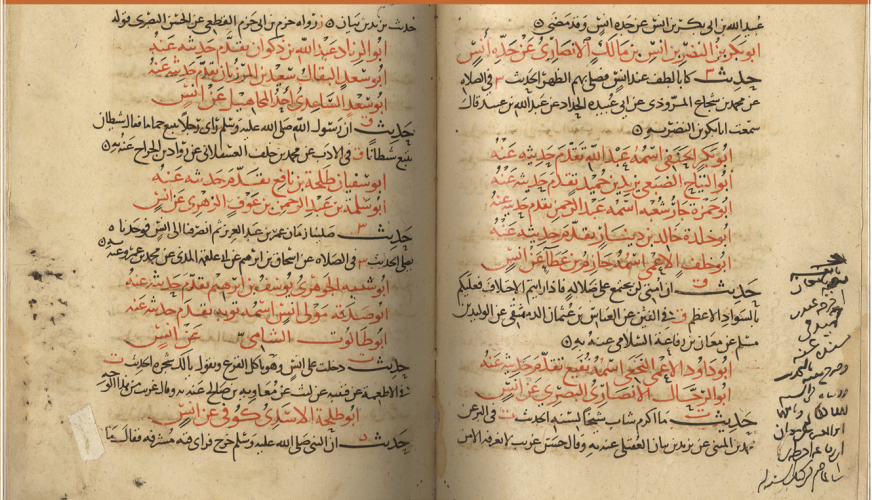 عبد الله بن ابي بكر بن انس عن جده انس وقد مضى
ابو بكر بن النضر بن انس بن مالك الانصاري عن جده انس
حديث كنا بالطف عند انس فصلى بهم الظهر الحديث س في الصلاه
عن محمد بن شجاع المروذي عن ابي عبيده الحداد عن عبد الله بن عبيد قال
سمعت ابا بكر بن النضر به
ابو بكر الحنفي اسمه عبد الله تقدم حديثه عنه
ابو التياح الضبعي يزيد بن حميد تقدم حديثه عنه
ابو حمزة جار شعبه اسمه عبد الرحمن تقدم حديثه عنه
ابو خلدة خالد بن دينار تقدم حديثه عنه
ابو خلف الاعمى اسمه حازم بن عطا عن انس
حديث ق ان امتي لن تجتمع على ضلاله فاذا رايتم الاختلاف فعليكم
بالسواد الاعظم ق في الفتن عن العباس بن عثمان الدمشقي عن الوليد بن
مسلم عن معان بن رفاعة السلامي عنه به
ابو داود الاعمى النخعي اسمه نفيع تقدم حديثه عنه
ابو الرحال الانصاري البصري عن انس
حديث ت ما اكرم شاب شيخا لسنه الحديث ت في البر عن
محمد بن المثنى عن يزيد بن بيان العقيلي عنه به وقال حسن غريب لا نعرفه الا من
حديث يزيد بن بيان ز رواه حزم بن ابي حزم القطعي عن الحسن البصري قوله
ابو الزناد عبد الله بن ذكوان تقدم حديثه عنه
ابو سعد البقال سعيد بن المرزبان تقدم حديثه عنه
ابو سعد الساعدي احد المجاهيل عن انس
حديث ق ان رسول الله صلى الله عليه وسلم راى رجلا يتبع حماما فقال شيطان
يتبع شيطانا ق في الادب عن محمد بن خلف العسقلاني عن رواد بن الجراح عنه به
ابو سفيان طلحة بن نافع تقدم حديثه عنه
ابو سلمة بن عبد الرحمن بن عوف الزهري عن انس
حديث س صلينا زمان عمر بن عبد العزيز ثم انصرفنا الى انس فوجدناه
يصلي الحديث س في الصلاه عن اسحاق بن ابرهيم عن ابي علقمة المدني عن محمد بن عمرو عنه
ابو شعبه الجوهري يوسف بن ابرهيم تقدم حديثه عنه
ابو صدقة مولى انس اسمه توبه تقدم حديثه عنه
ابو طالوت الشامي عن انس
حديث ت دخلت على انس وهو ياكل القرع ويقول يا لك شجره الحديث ت
في الاطعمة عن قتيبه عن ليث عن معاويه بن صالح عنه به وقال غريب من هذا الوجه
ابو طلحة الاسدي كوفي عن انس
حديث د ان النبي صلى الله عليه وسلم خرج فراى قبه مشرفه فقال ما